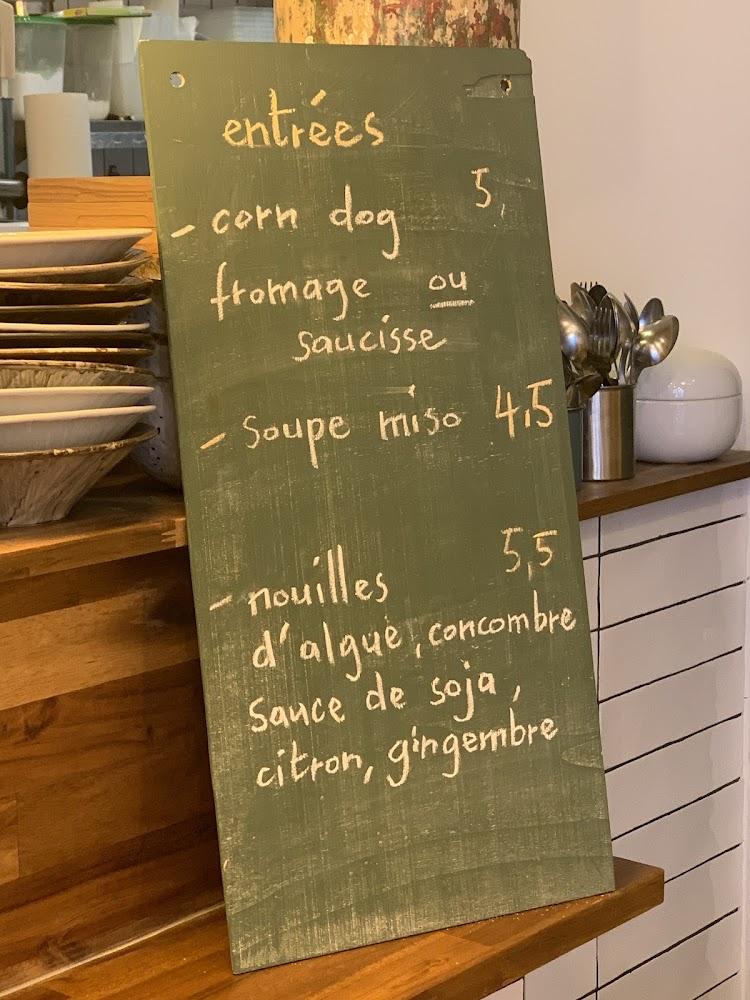 entrées
- corn dog 5,
fromage ou
saucisse
- soupe miso 4,5
- nouilles 5,5
d'algue, concombre
sauce de soja,
citron, gingembre